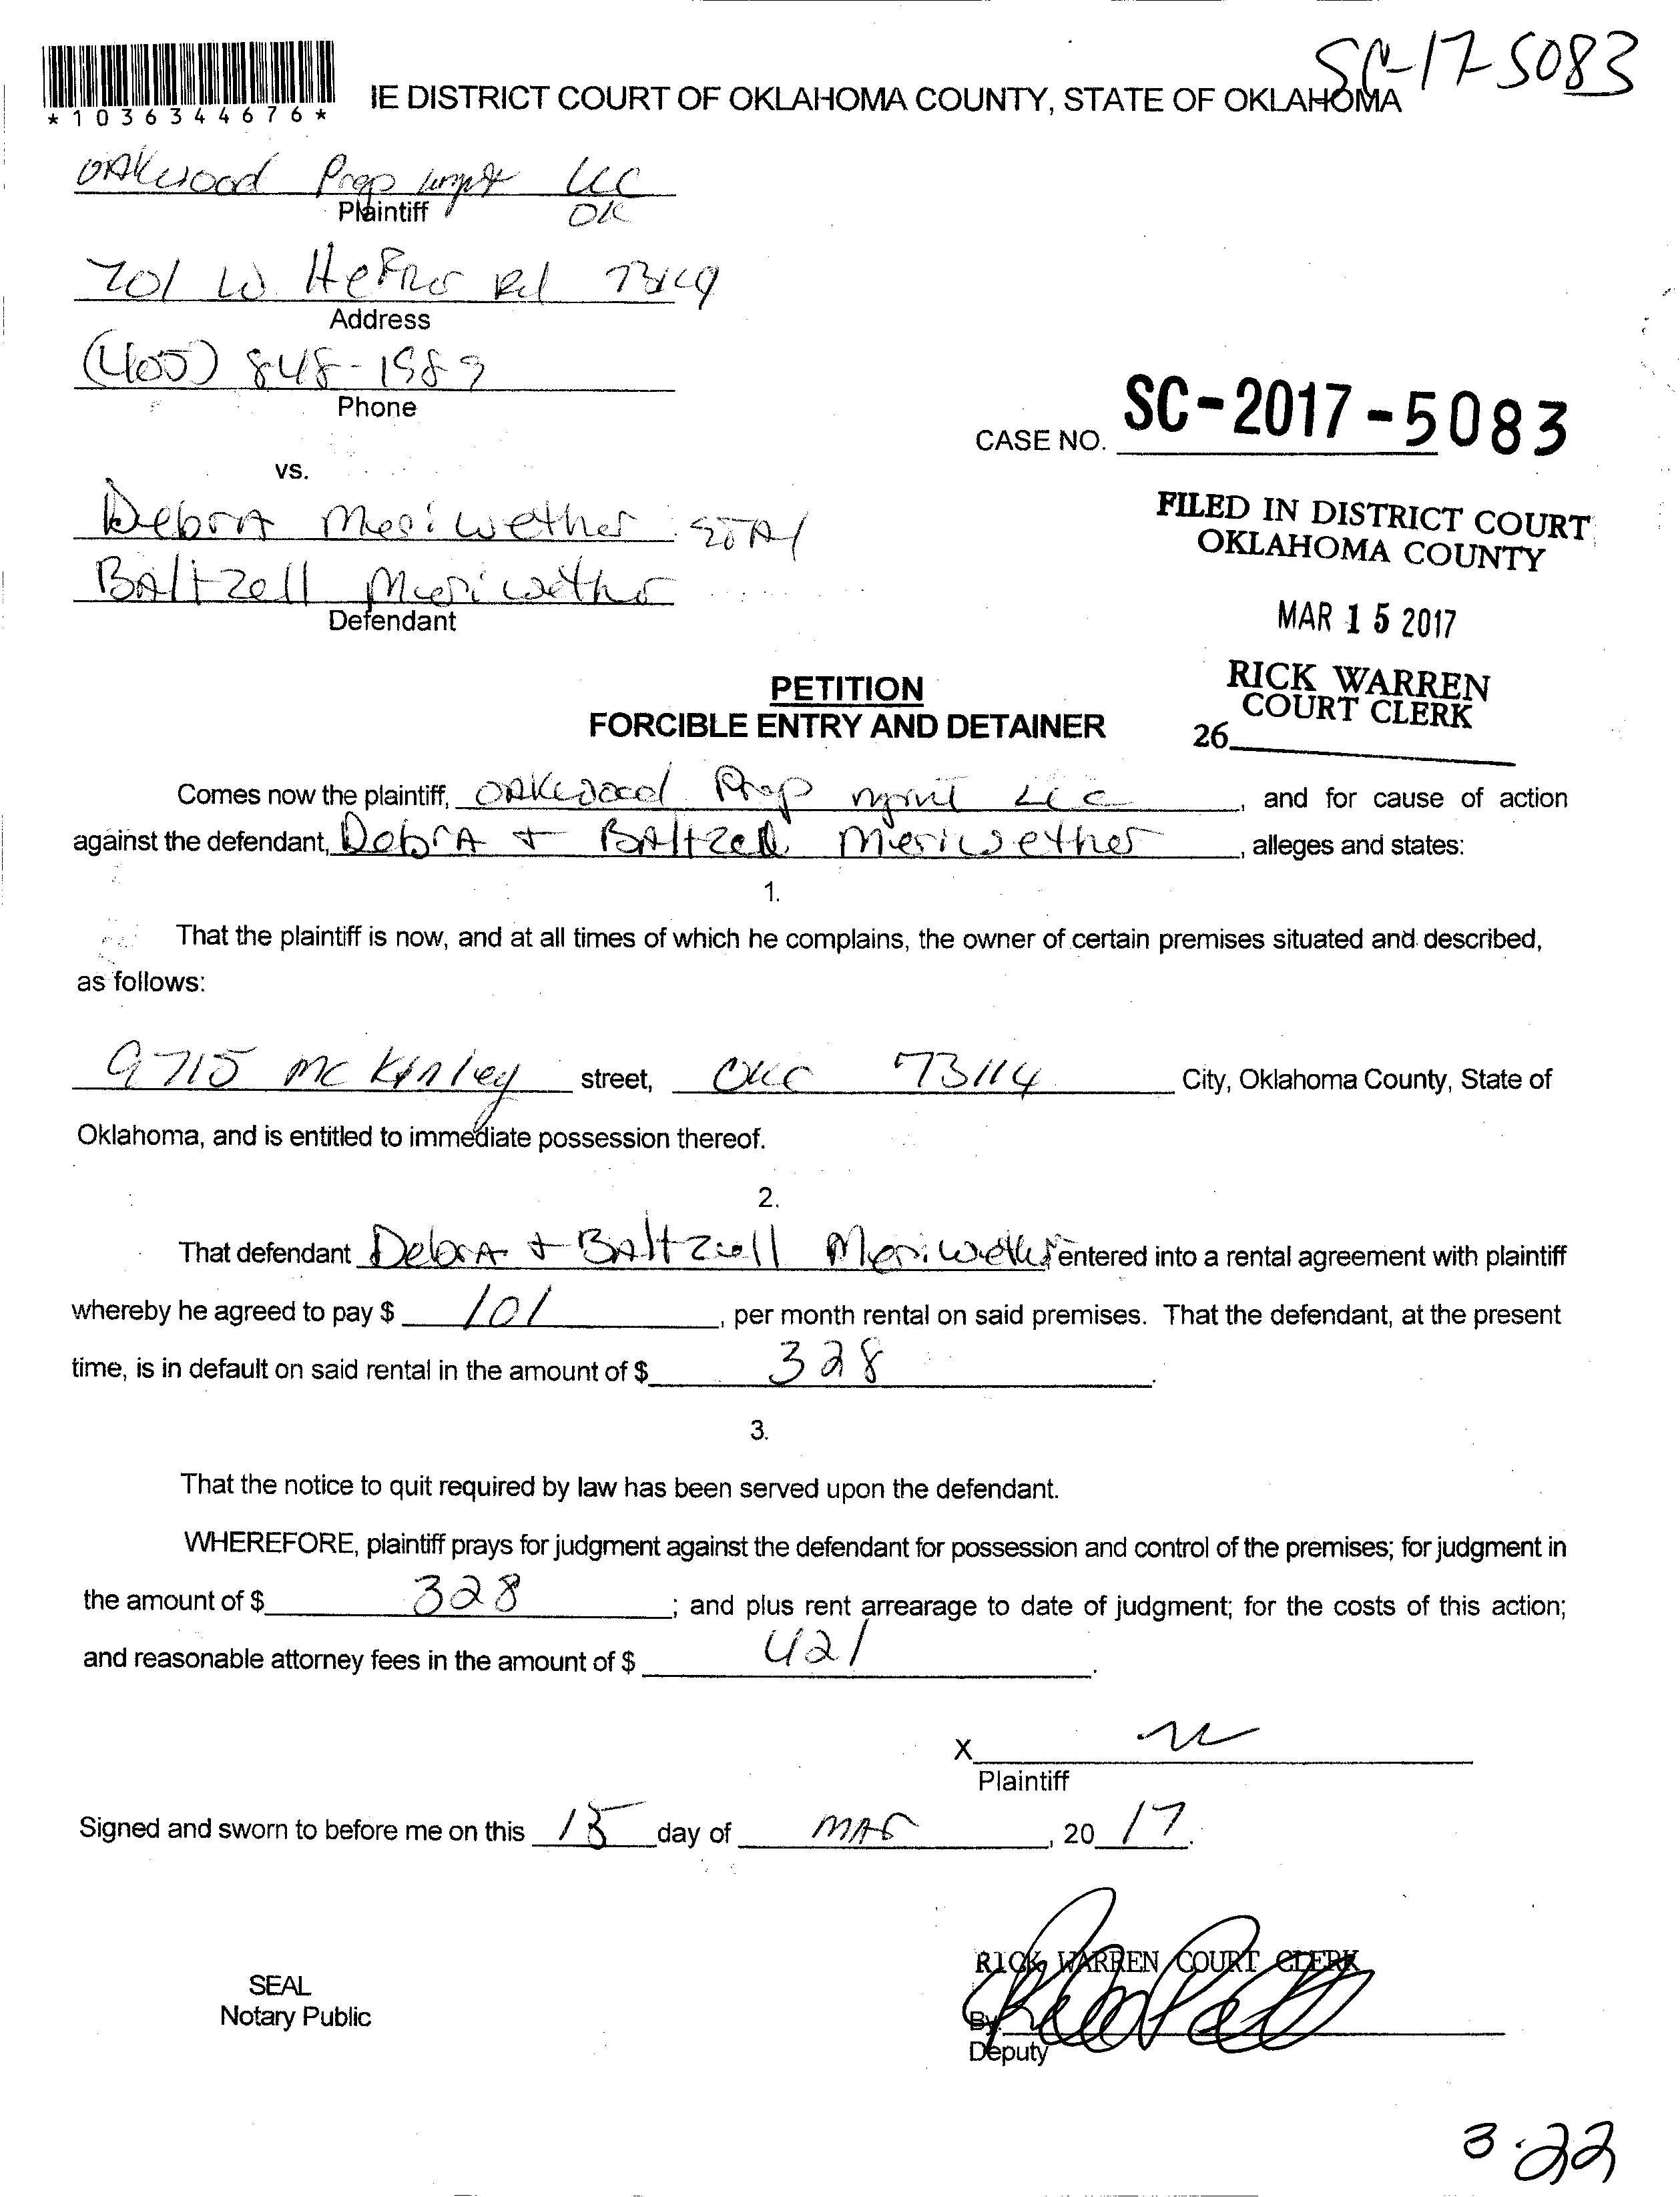 SC-17-5083
*1036344676*
IE DISTRICT COURT OF OKLAHOMA COUNTY, STATE OF OKLAHOMA
OAKwood Prop LLC
Plaintiff OK
701 W Hefner Rd
Address
(405) 848-1989
Phone
CASE NO. SC-2017-5083
vs.
Debra Meriwether
Baltzell Meriwether
Defendant
FILED IN DISTRICT COURT
OKLAHOMA COUNTY
MAR 15 2017
RICK WARREN
COURT CLERK
26
PETITION
FORCIBLE ENTRY AND DETAINER
Comes now the plaintiff, OAKwood Prop mgmt LLC, and for cause of action
against the defendant, Debra + Baltzell Meriwether, alleges and states:
1.
That the plaintiff is now, and at all times of which he complains, the owner of certain premises situated and described,
as follows:
9715 McKinley street, OKC 73114 City, Oklahoma County, State of
Oklahoma, and is entitled to immediate possession thereof.
2.
That defendant Debra + Baltzell Meriwether entered into a rental agreement with plaintiff
whereby he agreed to pay $ 101, per month rental on said premises. That the defendant, at the present
time, is in default on said rental in the amount of $ 328.
3.
That the notice to quit required by law has been served upon the defendant.
WHEREFORE, plaintiff prays for judgment against the defendant for possession and control of the premises; for judgment in
the amount of $ 328; and plus rent arrearage to date of judgment; for the costs of this action;
and reasonable attorney fees in the amount of $ 421.
X
Plaintiff
Signed and sworn to before me on this 15 day of MAR, 2017.
RICK WARREN COURT CLERK
SEAL
Notary Public
By
Deputy
3-22